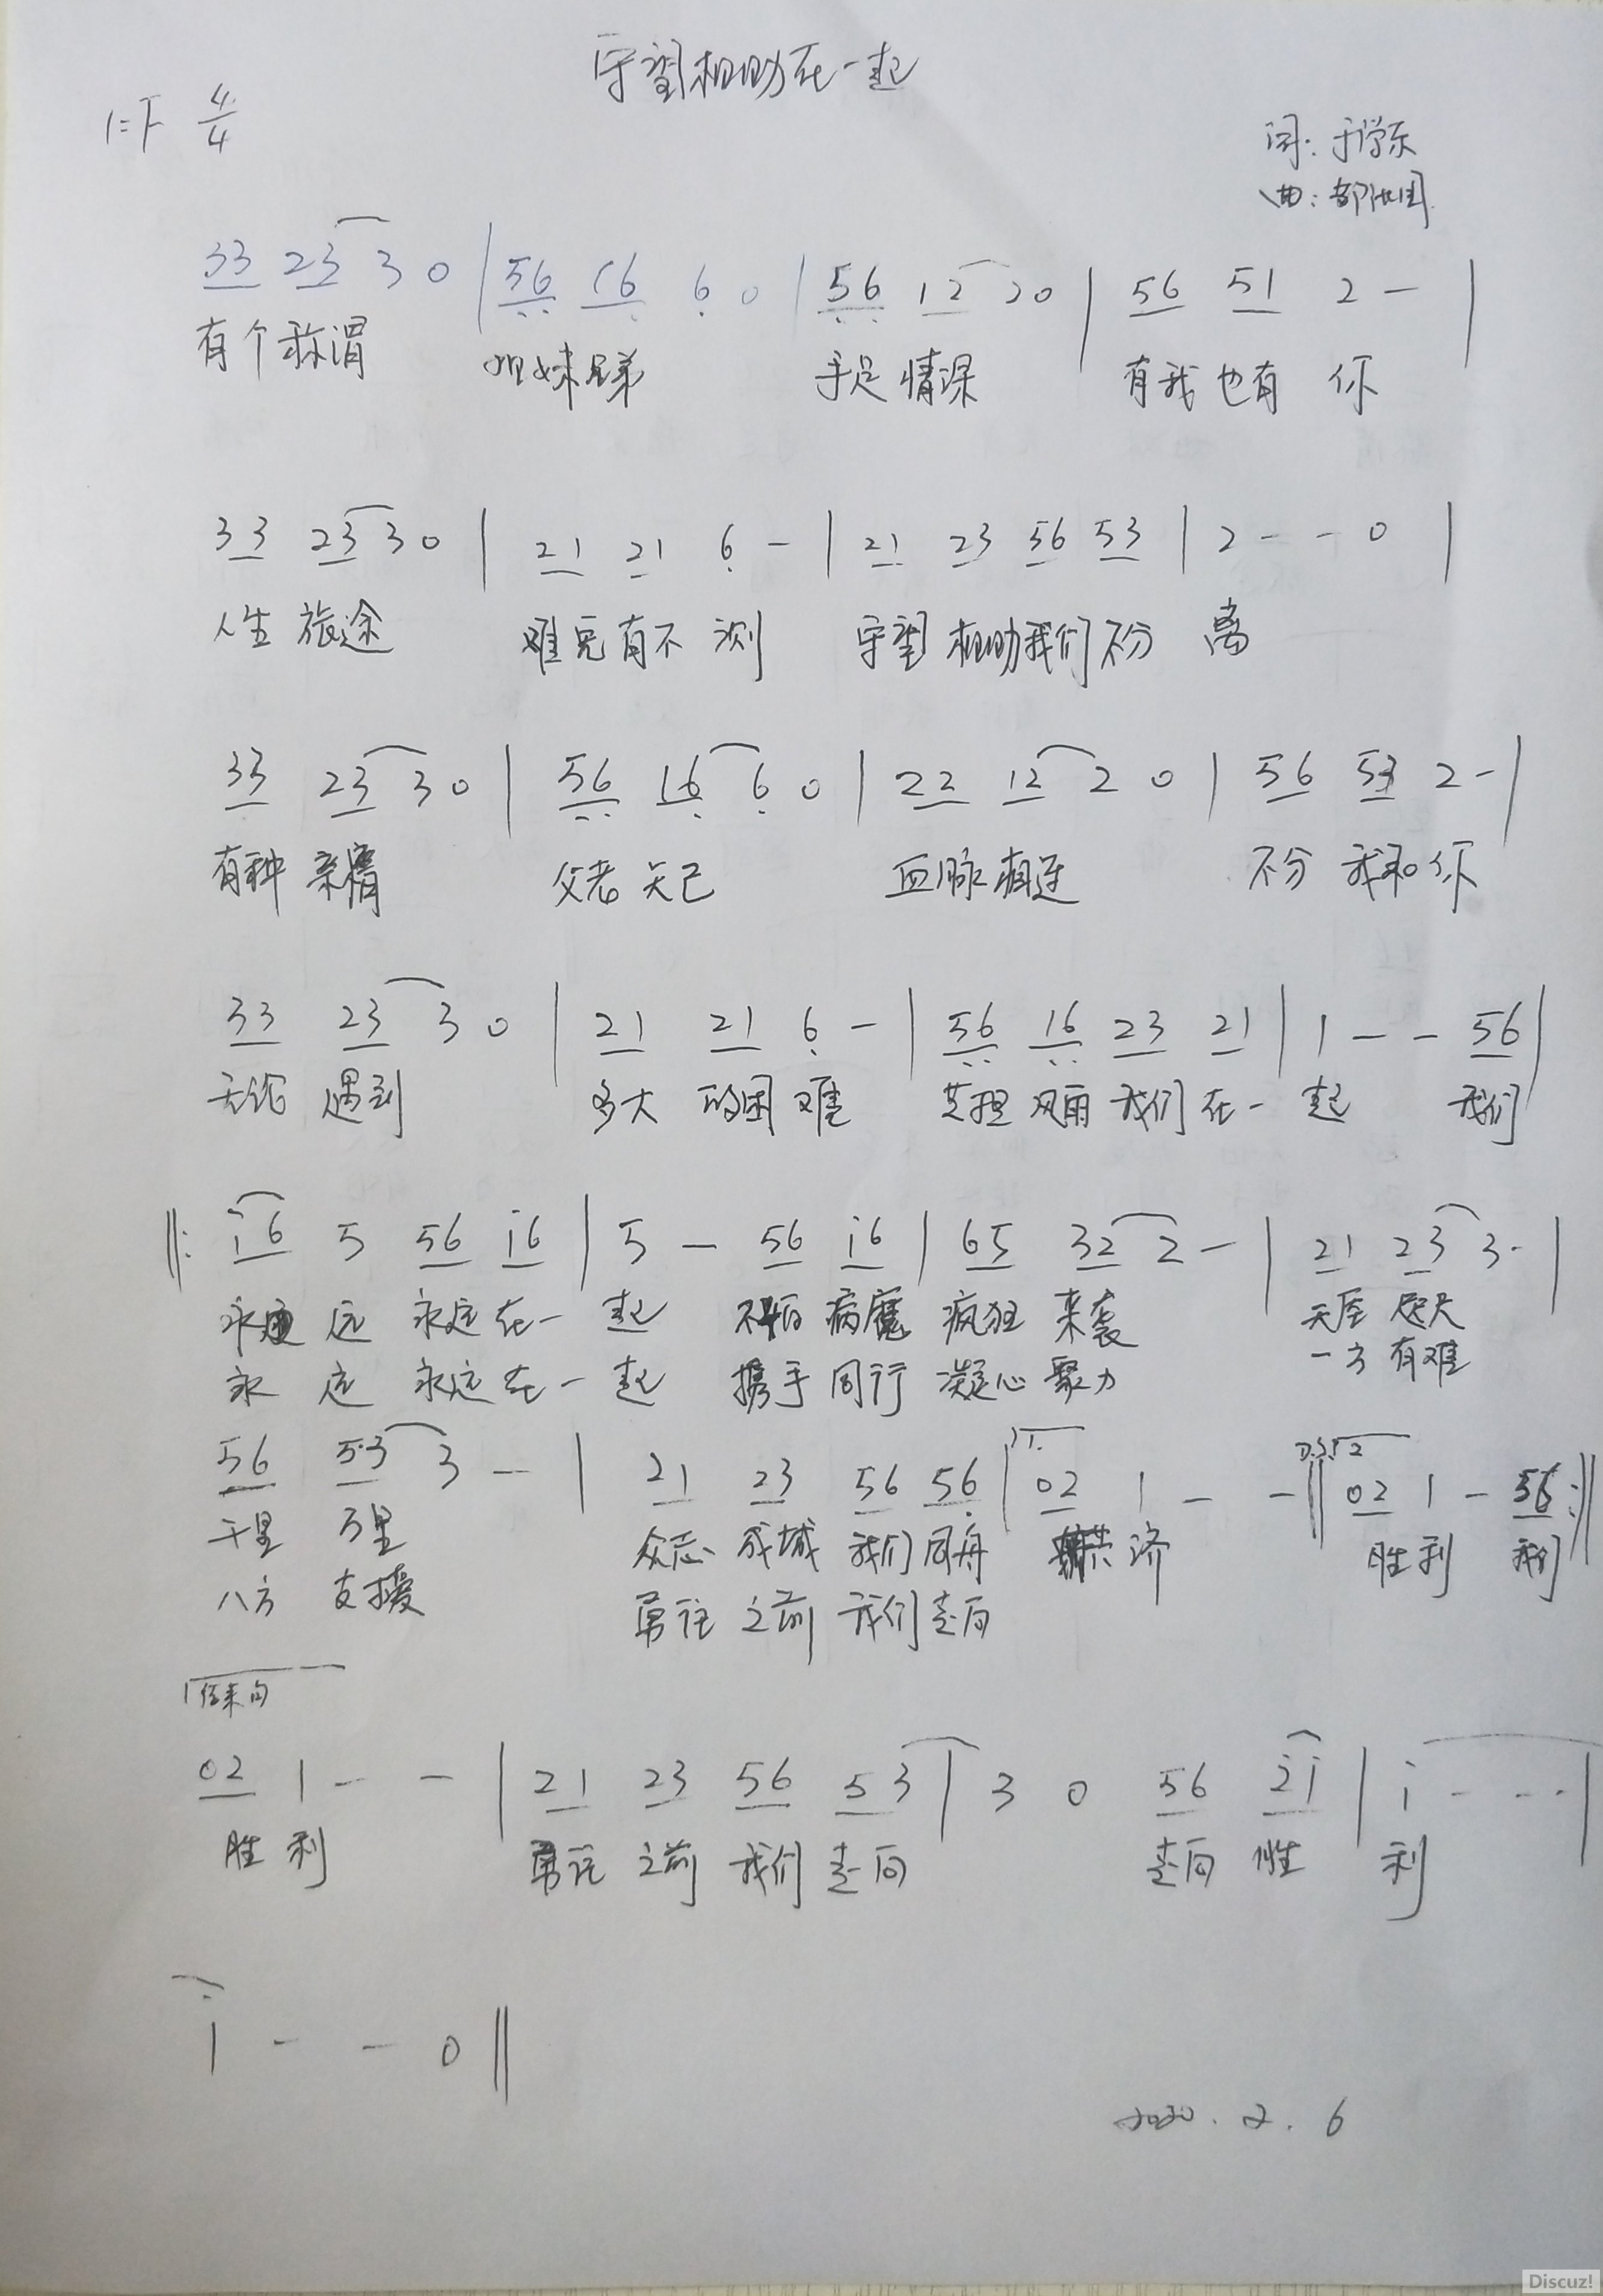 守望相助在一起
1=F 4/4
词：于学东
曲：
33 23 3 0 | 56 16 6 0 | 56 12 20 | 56 51 2 — |
有个称谓 姐妹兄弟 手足情深 有我也有 你
33 23 3 0 | 21 21 6 — | 21 23 56 53 | 2 - - 0 |
人生 旅途 难免有不 测 守望 相助我们不分 离
33 23 3 0 | 56 16 6 0 | 22 12 2 0 | 56 53 2 - |
有种 亲情 父老 知己 血脉相连 不分 我和你
33 23 3 0 | 21 21 6 — | 56 16 23 21 | 1 — — 56 |
无论 遇到 多大 的困 难 共担 风雨 我们 在一 起 我们
||: i6 5 56 i6 | 5 — 56 i6 | 65 32 2 — | 21 23 3 - |
永 远 永远 在一 起 不怕 病魔 疯狂 来袭 天涯 咫尺
永 远 永远 在一 起 携手 同行 凝心 聚力 一方 有难
56 53 3 — | 21 23 56 56 | 1. 02 1 — — || D.S. 2 02 1 — 56 :||
千里 万里 众志 成城 我们 同舟 共 济 胜 利 我们
八方 支援 勇往 之前 我们 走向
结束句
02 1 — — | 21 23 56 53 | 3 0 56 2i | i - - - |
胜 利 勇往 之前 我们 走向 走向 胜 利
i - - 0 ||
2020.2.6
Discuz!